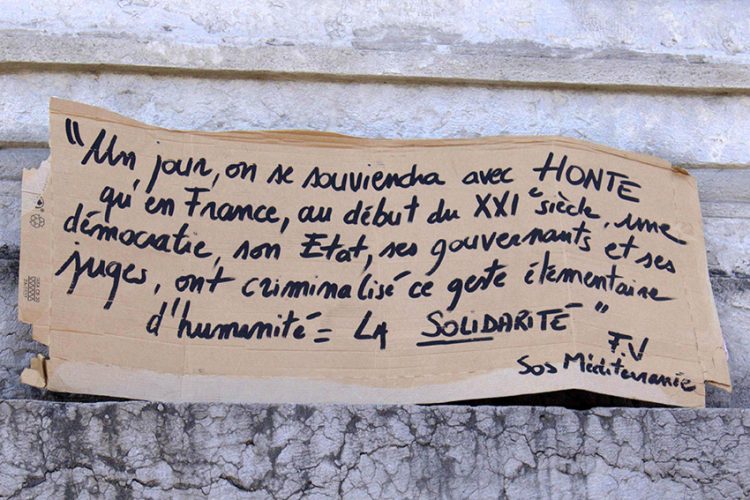 "Un jour, on se souviendra avec HONTE
qu'en France, au début du XXIe siècle, une
démocratie, son Etat, ses gouvernants et ses
juges, ont criminalisé ce geste élémentaire
d'humanité = LA SOLIDARITÉ"
F.V
Sos Méditerranie